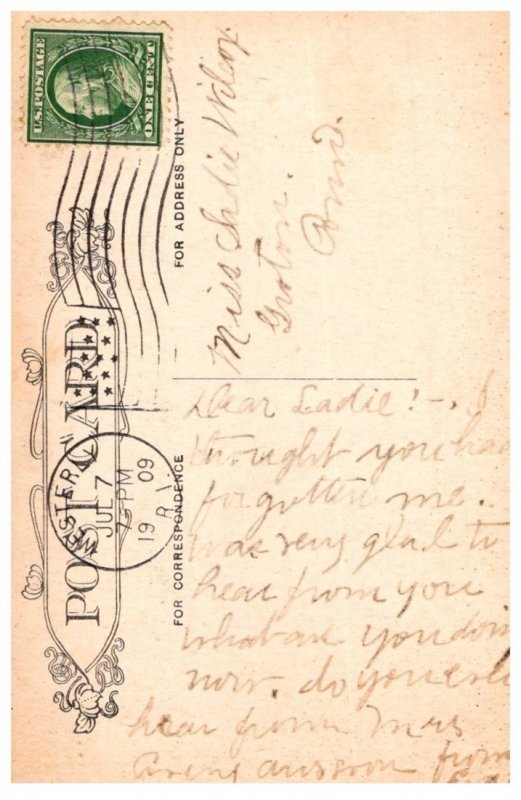 U.S.POSTAGE
ONE CENT
POST CARD
WESTERLY
JUL 7
7 - PM
19 09
R I
FOR ADDRESS ONLY
Miss Sadie Wilcox
Groton.
Conn.
FOR CORRESPONDENCE
Dear Sadie! - I
thought you had
forgotten me.
was very glad to
hear from you
what are you doin
now. do you ever
hear from Mrs
from